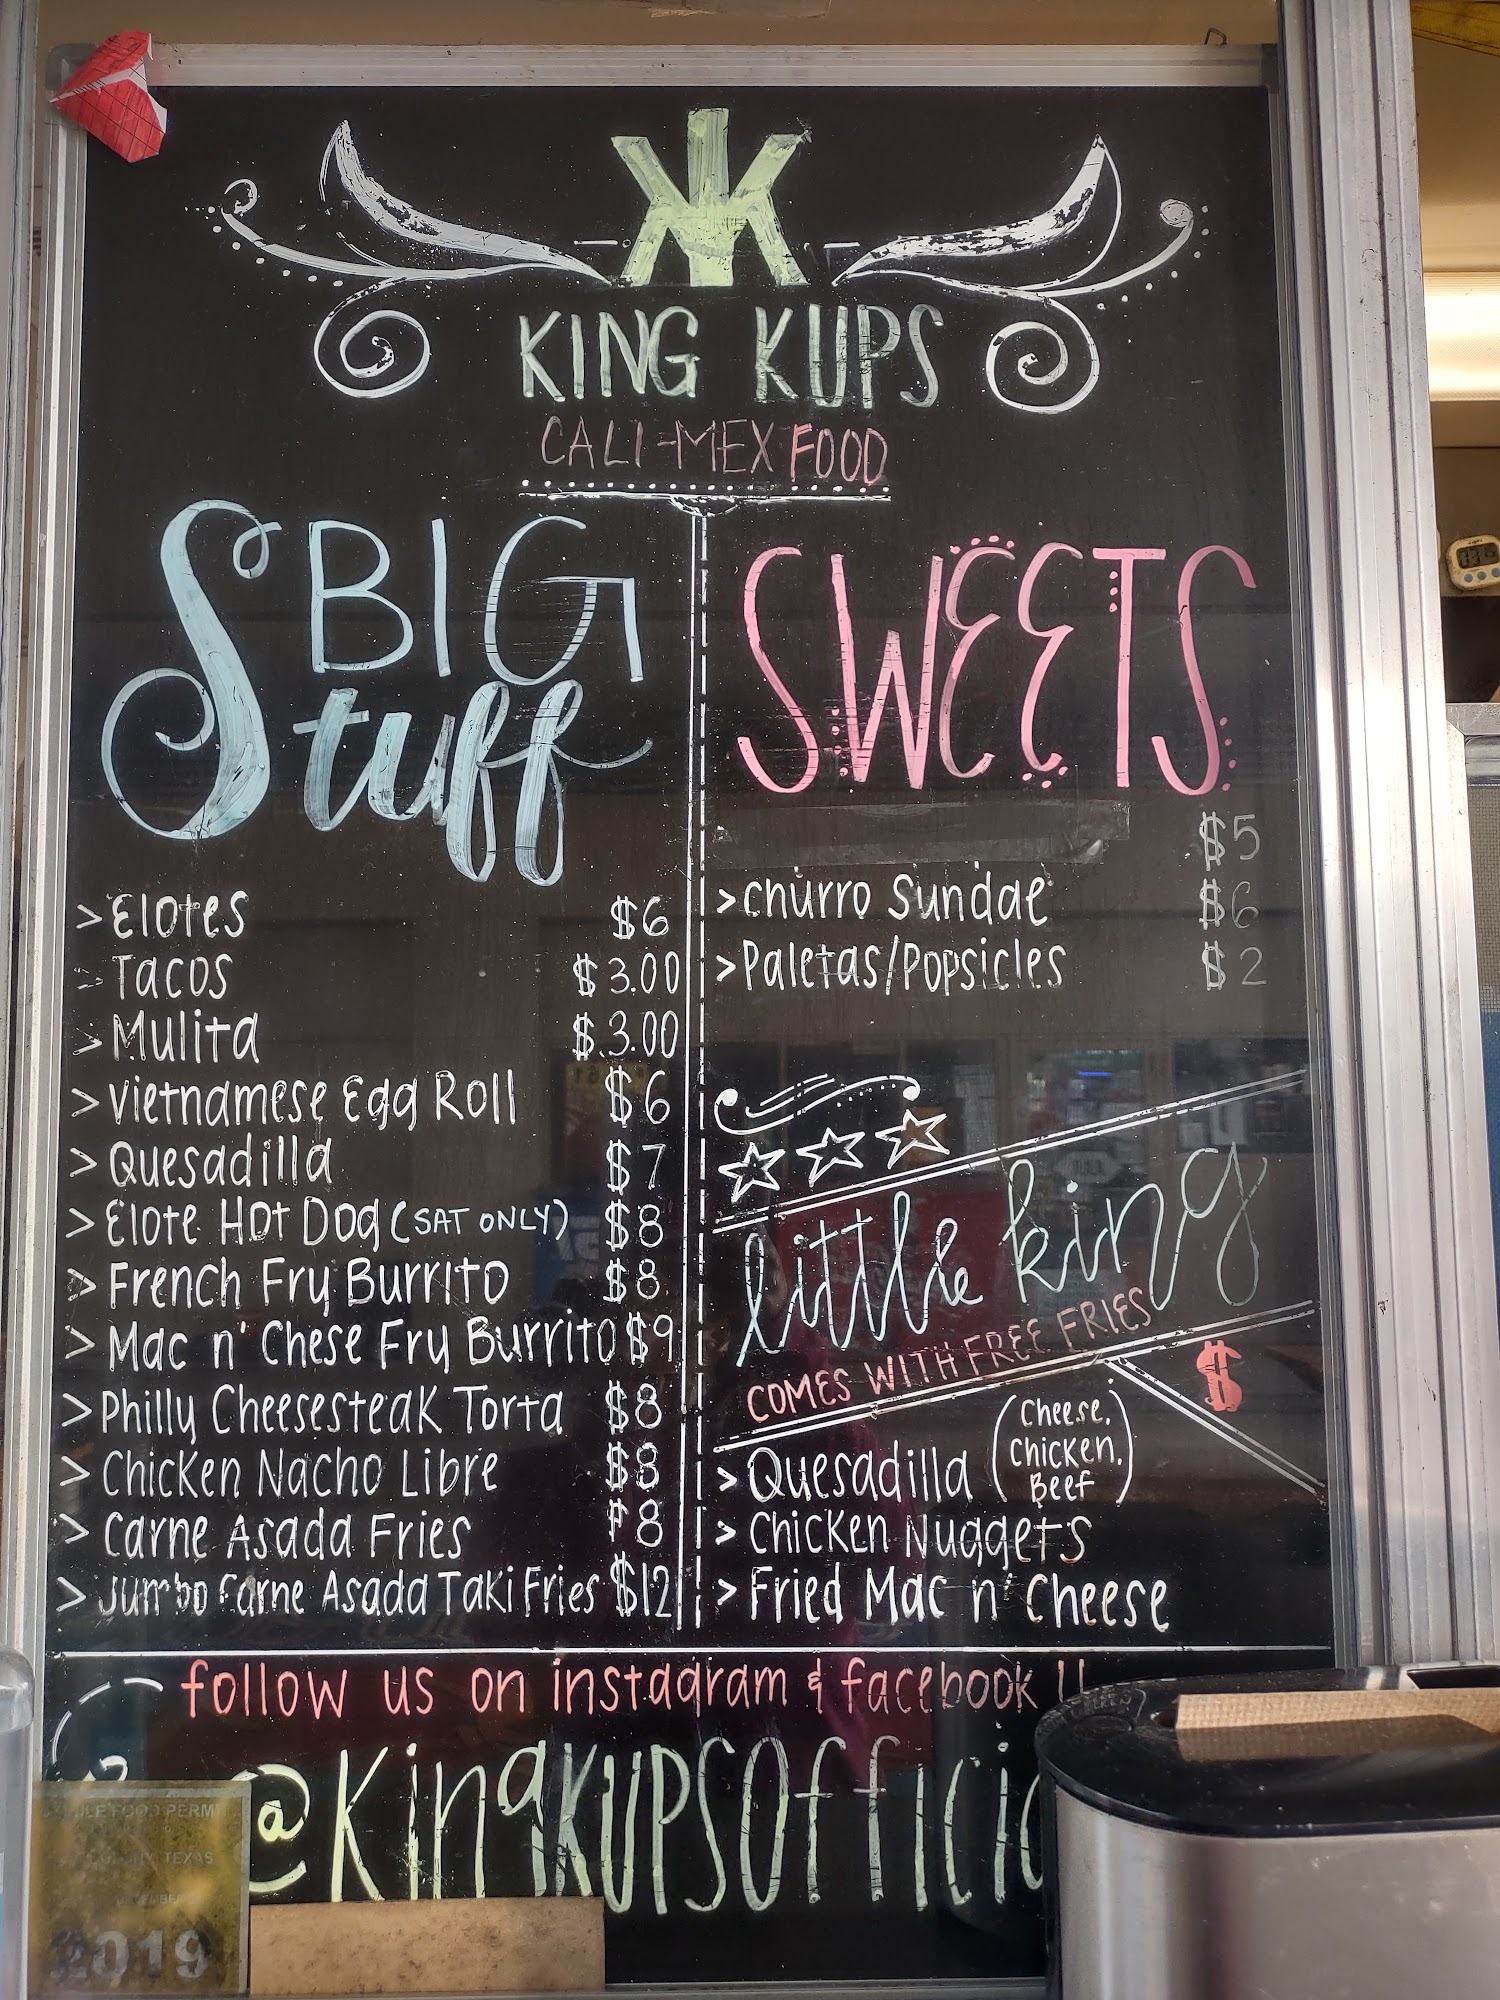 KK
KING KUPS
CALI-MEX FOOD
BIG
Stuff
> Elotes $6
> Tacos $3.00
> Mulita $3.00
> Vietnamese Egg Roll $6
> Quesadilla $7
> Elote Hot Dog (SAT ONLY) $8
> French Fry Burrito $8
> Mac n' Chese Fry Burrito $9
> Philly Cheesesteak Torta $8
> Chicken Nacho Libre $8
> Carne Asada Fries $8
> Jumbo Carne Asada Taki Fries $12
SWEETS
$5
> Churro Sundae $6
> Paletas/Popsicles $2
little king
COMES WITH FREE FRIES
$
> Quesadilla (Cheese, Chicken, Beef)
> Chicken Nuggets
> Fried Mac n' Cheese
follow us on instagram & facebook
@KingKupsOffici
FOOD PERM
TEXAS
2019